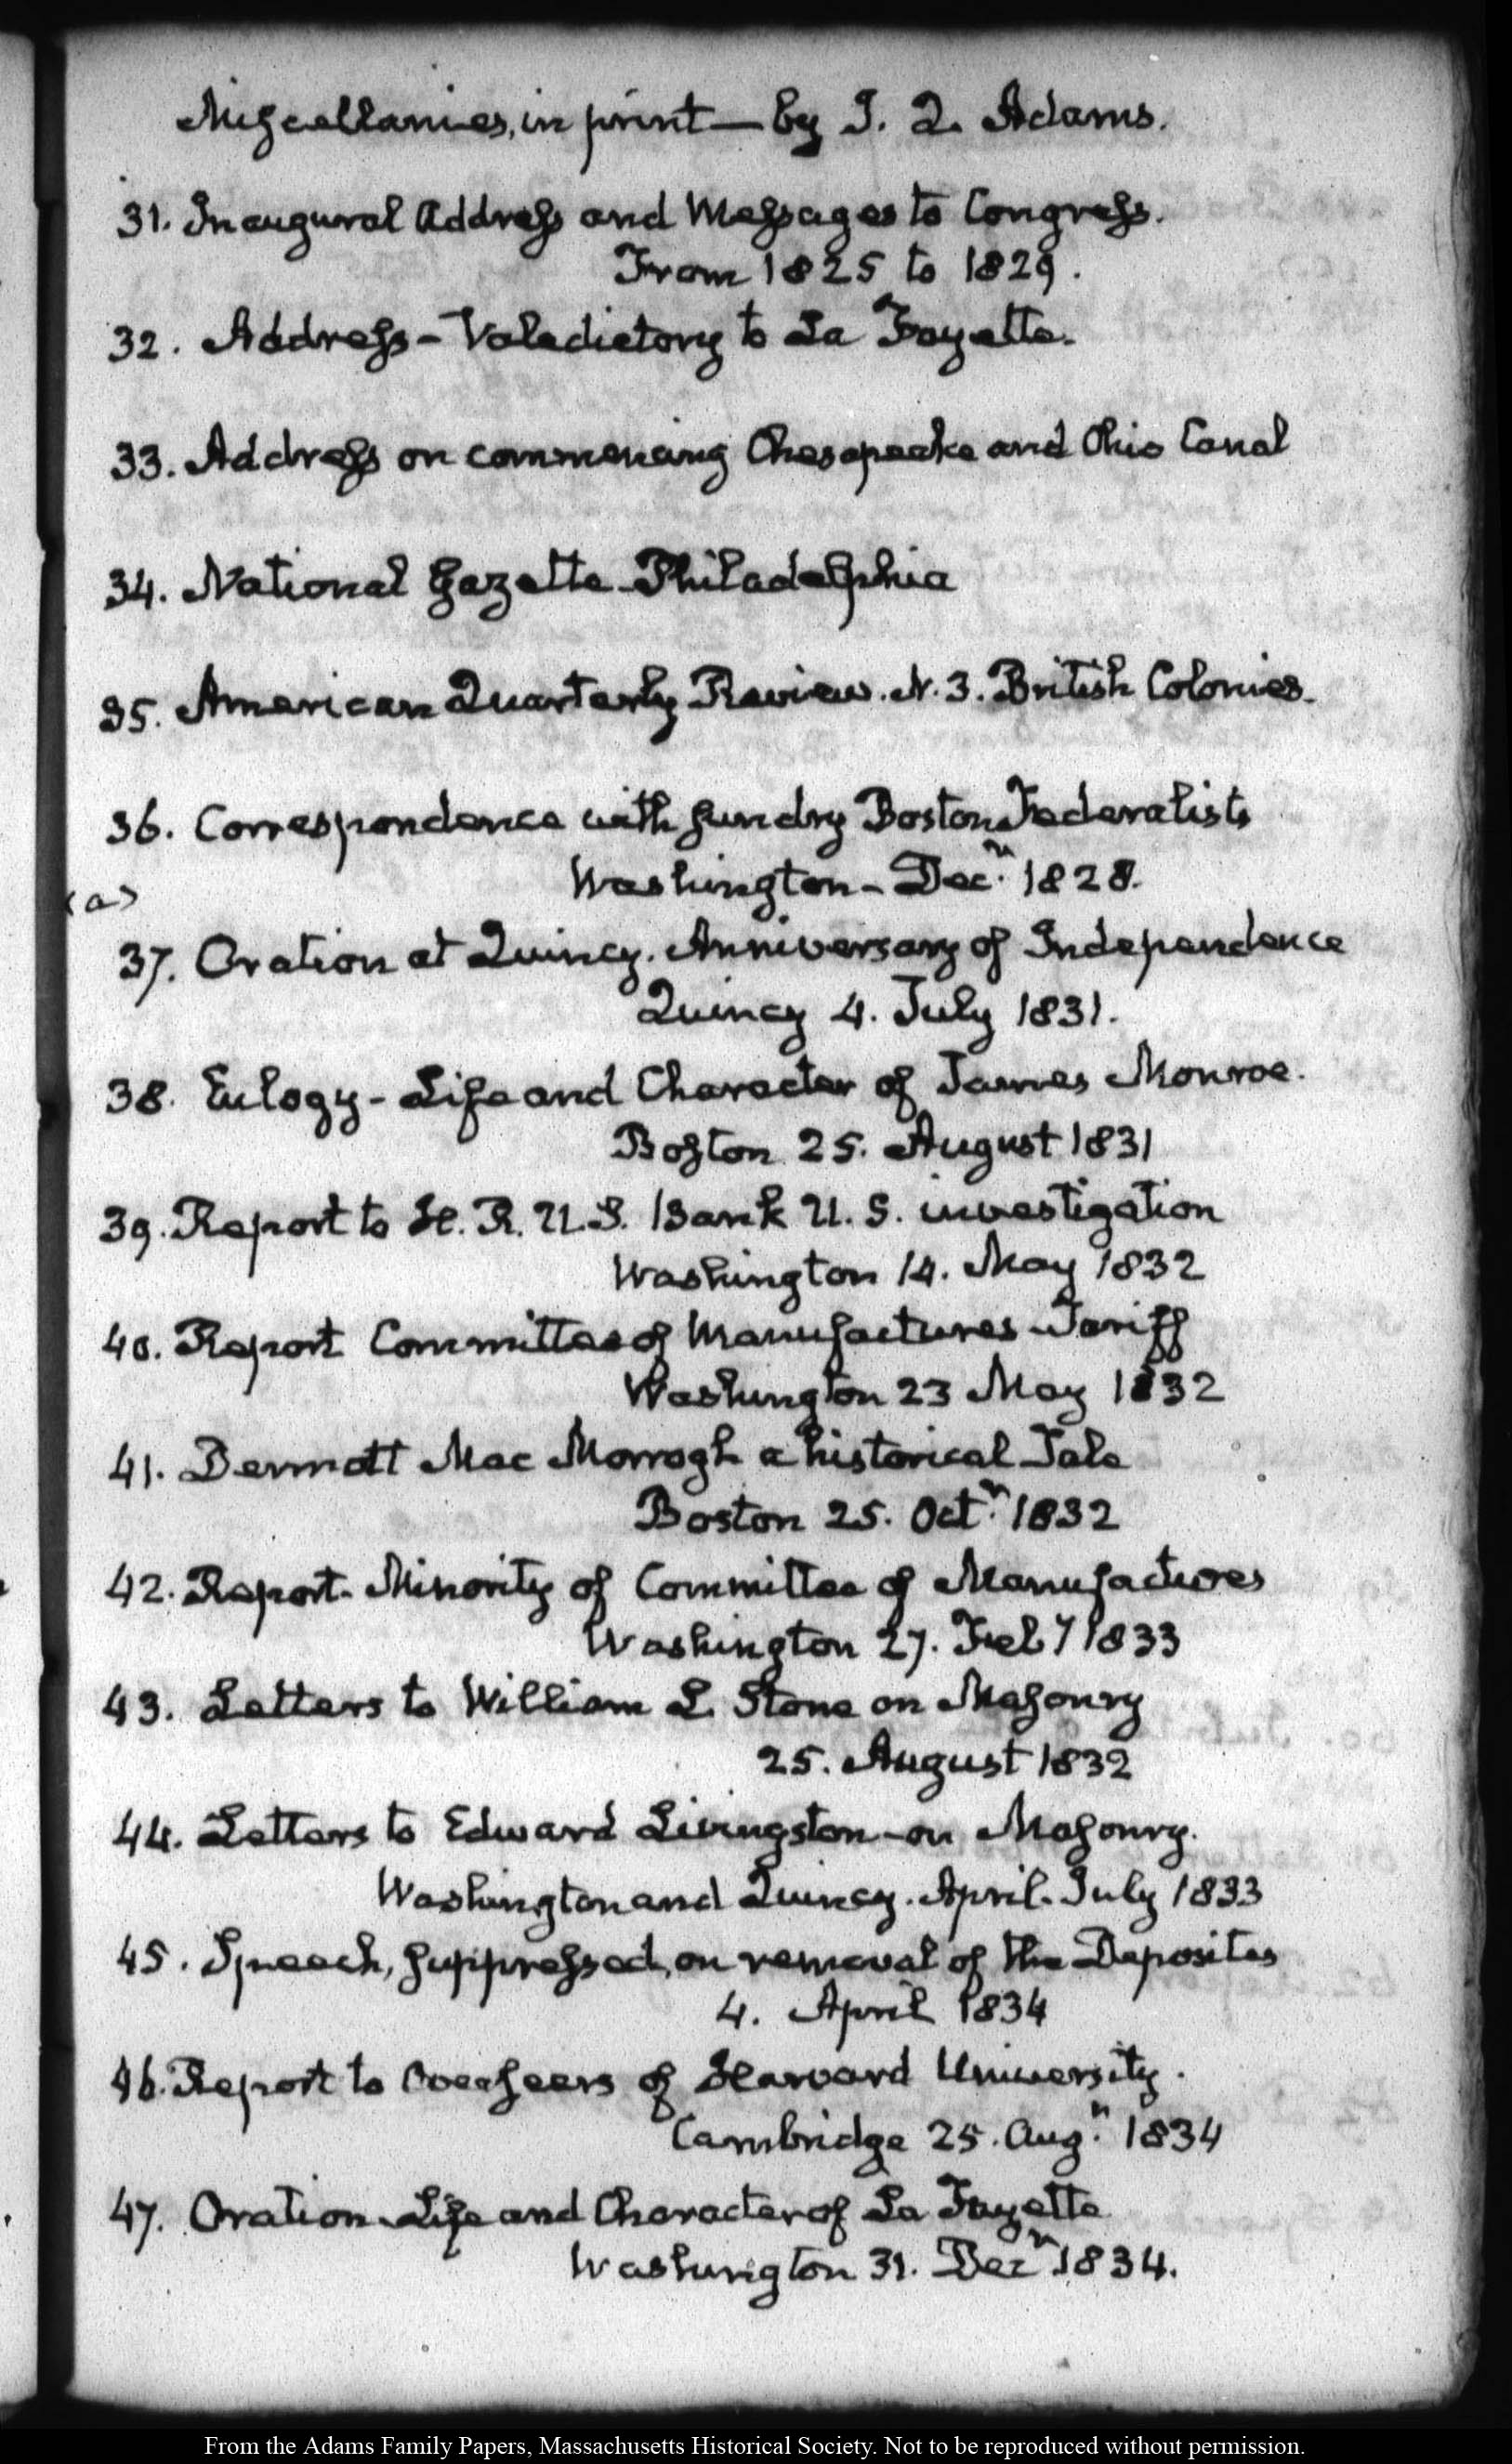 Miscellanies, in print — by J. Q. Adams.
31. Inaugural Address and Messages to Congress.
From 1825 to 1829.
32. Address - Valedictory to La Fayette.
33. Address on commencing Chesapeake and Ohio Canal
34. National Gazette - Philadelphia
35. American Quarterly Review. N. 3. British Colonies.
36. Correspondence with sundry Boston Federalists
Washington - Decr. 1828.
<a>
37. Oration at Quincy. Anniversary of Independence
Quincy 4. July 1831.
38. Eulogy - Life and Character of James Monroe.
Boston 25. August 1831
39. Report to H. R. U.S. Bank U. S. investigation
Washington 14. May 1832
40. Report Committee of Manufactures - Tariff
Washington 23 May 1832
41. Dermott Mac Morrogh a historical Tale
Boston 25. Octr. 1832
42. Report - Minority of Committee of Manufactures
Washington 27. Feby 1833
43. Letters to William L. Stone on Masonry
25. August 1832
44. Letters to Edward Livingston - on Masonry.
Washington and Quincy. April - July 1833
45. Speech, suppressed, on removal of the Deposites
4. April 1834
46. Report to Overseers of Harvard University.
Cambridge 25. Aug. 1834
47. Oration - Life and Character of La Fayette
Washington 31. Decr 1834.
From the Adams Family Papers, Massachusetts Historical Society. Not to be reproduced without permission.